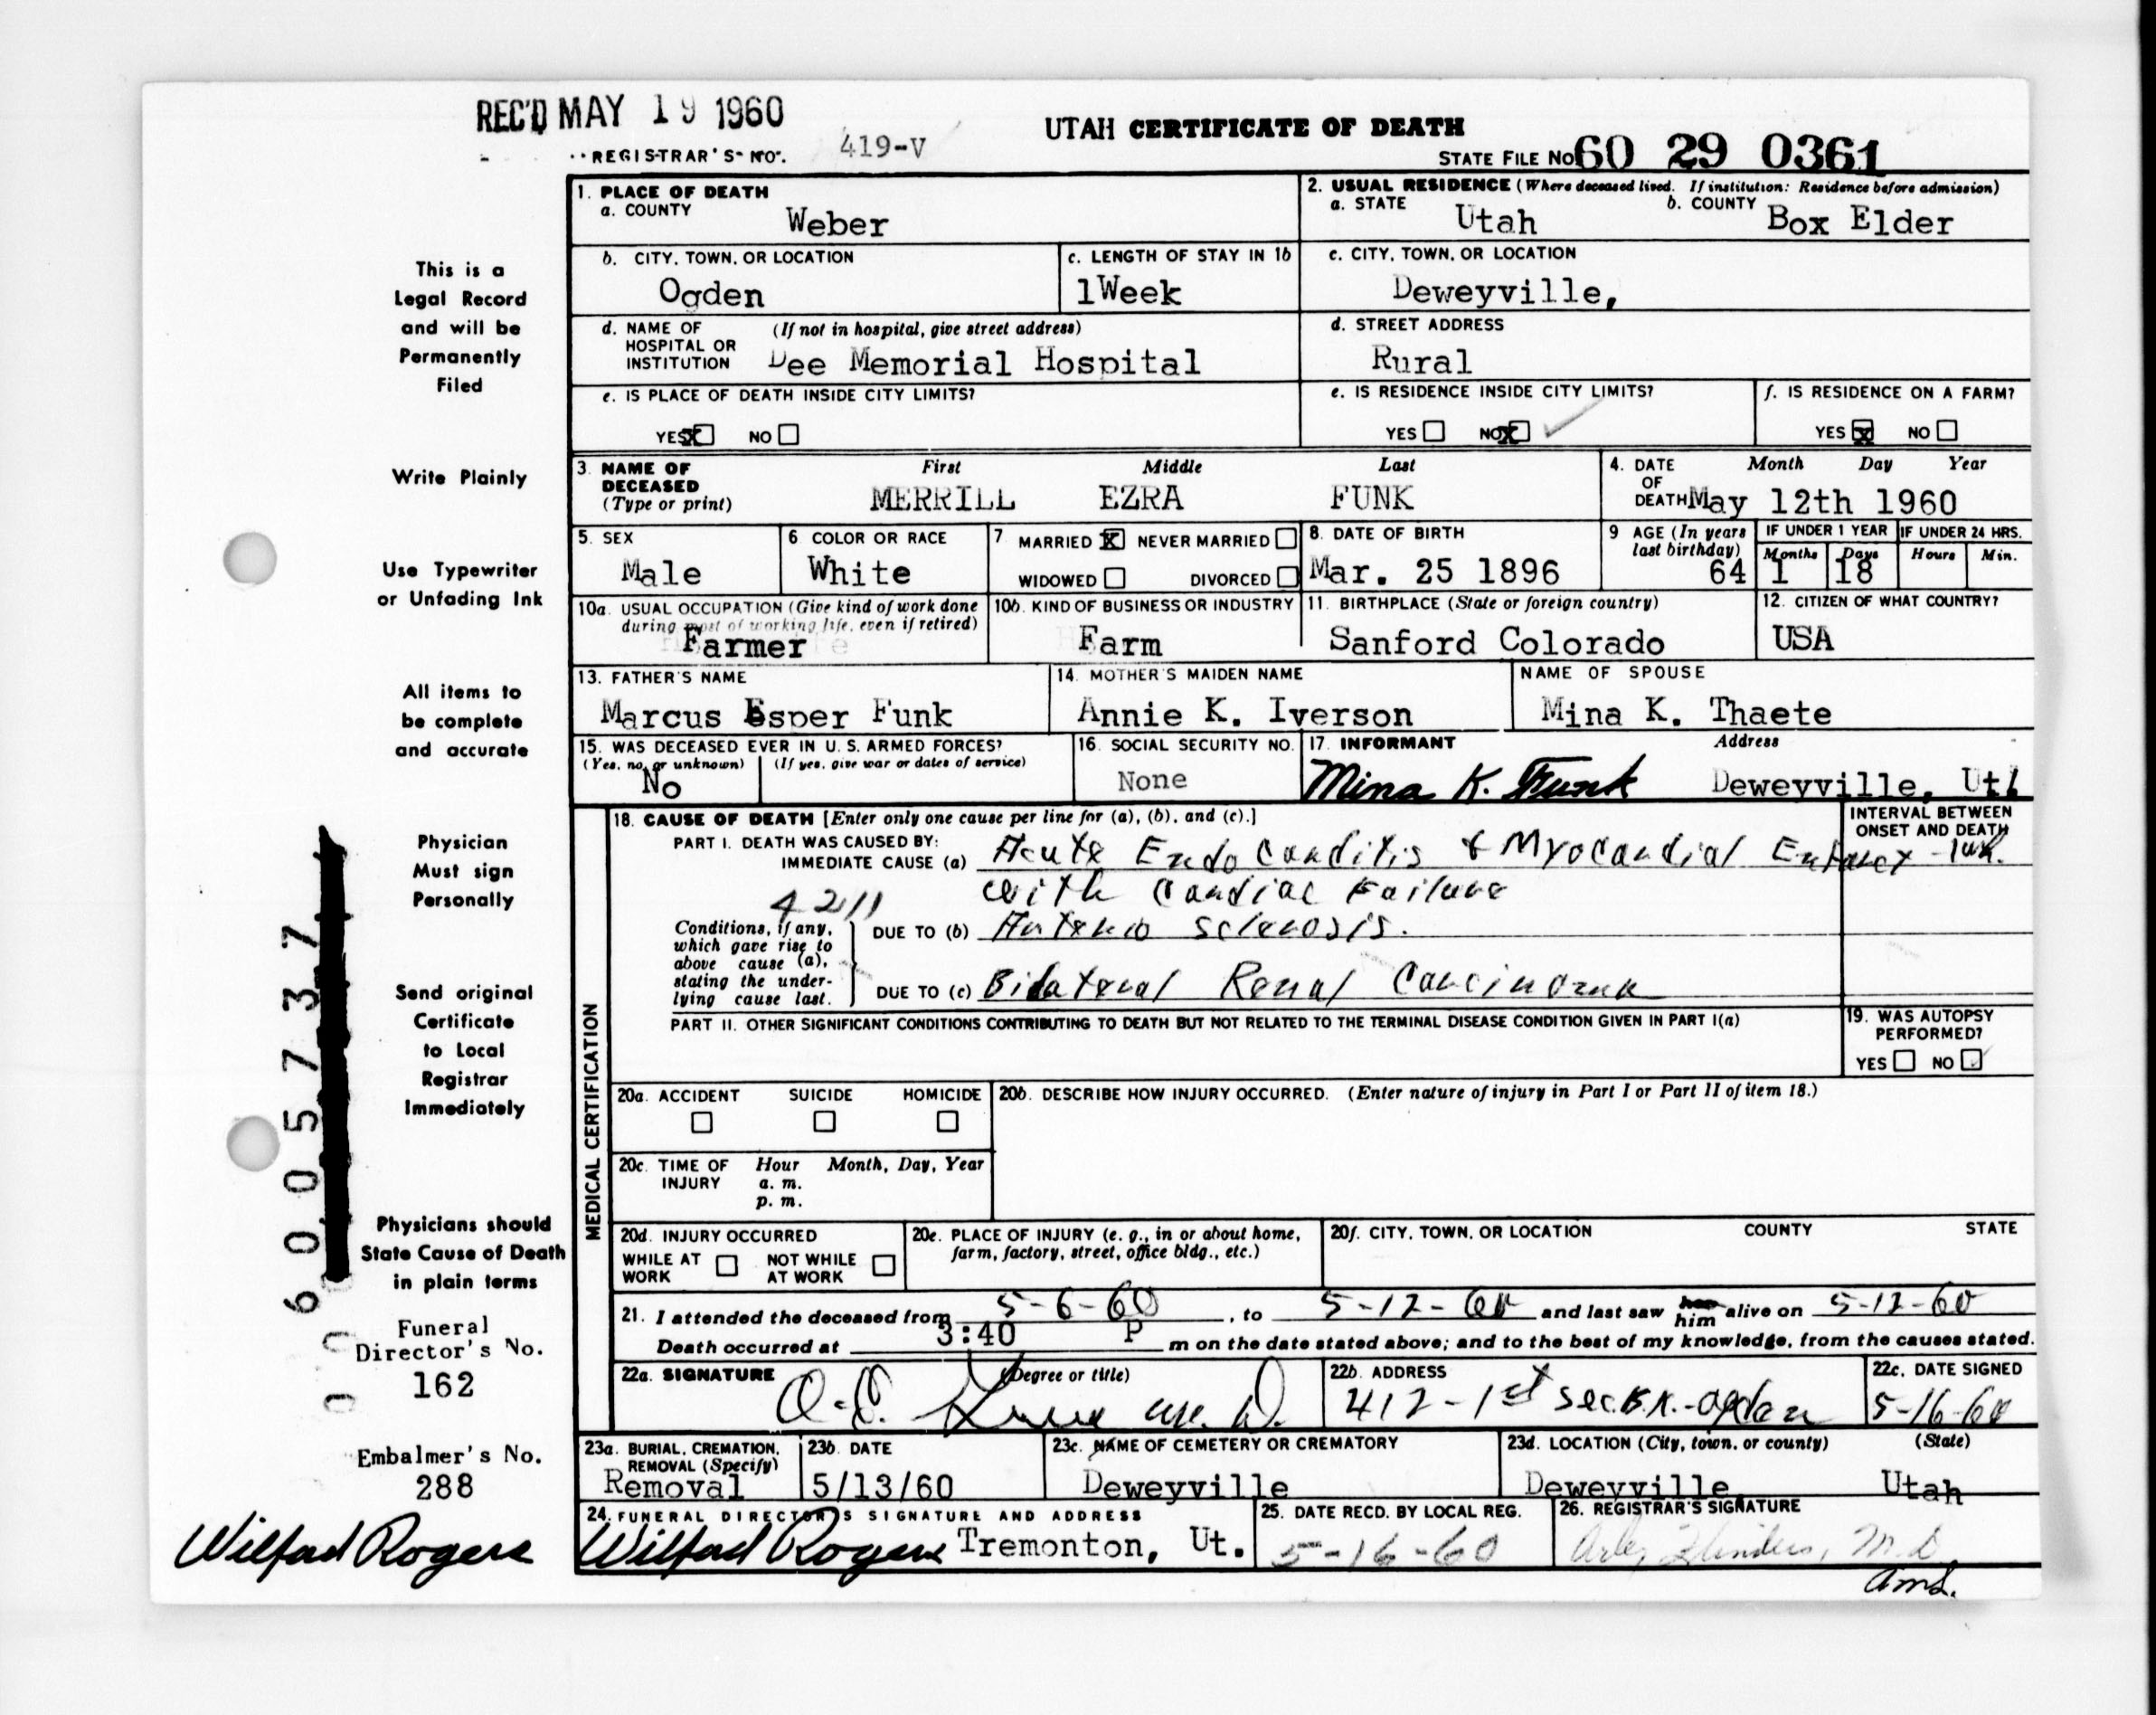 REC'D MAY 19 1960
REGISTRAR'S NO. 419-V
UTAH CERTIFICATE OF DEATH
STATE FILE NO 60 29 0361
This is a
Legal Record
and will be
Permanently
Filed
Write Plainly
Use Typewriter
or Unfading Ink
All items to
be complete
and accurate
Physician
Must sign
Personally
Send original
Certificate
to Local
Registrar
Immediately
Physicians should
State Cause of Death
in plain terms
Funeral
Director's No.
162
Embalmer's No.
288
Wilford Rogers
006005737
1. PLACE OF DEATH
a. COUNTY
Weber
2. USUAL RESIDENCE (Where deceased lived. If institution: Residence before admission)
a. STATE Utah b. COUNTY Box Elder
b. CITY, TOWN, OR LOCATION
Ogden
c. LENGTH OF STAY IN 1b
1Week
c. CITY, TOWN, OR LOCATION
Deweyville,
d. NAME OF HOSPITAL OR INSTITUTION (If not in hospital, give street address)
Dee Memorial Hospital
d. STREET ADDRESS
Rural
e. IS PLACE OF DEATH INSIDE CITY LIMITS?
YES X NO
e. IS RESIDENCE INSIDE CITY LIMITS?
YES NO X
f. IS RESIDENCE ON A FARM?
YES X NO
3. NAME OF DECEASED (Type or print)
First Middle Last
MERRILL EZRA FUNK
4. DATE OF DEATH Month Day Year
May 12th 1960
5. SEX
Male
6. COLOR OR RACE
White
7. MARRIED X NEVER MARRIED
WIDOWED DIVORCED
8. DATE OF BIRTH
Mar. 25 1896
9 AGE (In years last birthday)
64
IF UNDER 1 YEAR IF UNDER 24 HRS.
Months Days Hours Min.
1 18
10a. USUAL OCCUPATION (Give kind of work done during most of working life, even if retired)
Farmer
10b. KIND OF BUSINESS OR INDUSTRY
Farm
11. BIRTHPLACE (State or foreign country)
Sanford Colorado
12. CITIZEN OF WHAT COUNTRY?
USA
13. FATHER'S NAME
Marcus Esper Funk
14. MOTHER'S MAIDEN NAME
Annie K. Iverson
NAME OF SPOUSE
Mina K. Thaete
15. WAS DECEASED EVER IN U.S. ARMED FORCES?
(Yes, no, or unknown) (If yes, give war or dates of service)
No
16. SOCIAL SECURITY NO.
None
17. INFORMANT Address
Mina K. Funk Deweyville, Ut.
MEDICAL CERTIFICATION
18. CAUSE OF DEATH [Enter only one cause per line for (a), (b), and (c).]
INTERVAL BETWEEN ONSET AND DEATH
PART I. DEATH WAS CAUSED BY:
IMMEDIATE CAUSE (a) Acute Endocarditis & Myocardial - 1wk.
with Cardiac Failure
4211
Conditions, if any, which gave rise to above cause (a), stating the underlying cause last.
DUE TO (b) Arterio sclerosis.
DUE TO (c) Bilateral Renal Carcinoma
PART II. OTHER SIGNIFICANT CONDITIONS CONTRIBUTING TO DEATH BUT NOT RELATED TO THE TERMINAL DISEASE CONDITION GIVEN IN PART I(a)
19. WAS AUTOPSY PERFORMED?
YES NO ✓
20a. ACCIDENT SUICIDE HOMICIDE
20b. DESCRIBE HOW INJURY OCCURRED. (Enter nature of injury in Part I or Part II of item 18.)
20c. TIME OF INJURY Hour Month, Day, Year
a. m.
p. m.
20d. INJURY OCCURRED
WHILE AT WORK NOT WHILE AT WORK
20e. PLACE OF INJURY (e. g., in or about home, farm, factory, street, office bldg., etc.)
20f. CITY, TOWN, OR LOCATION COUNTY STATE
21. I attended the deceased from 5-6-60, to 5-12-60 and last saw her him alive on 5-12-60
Death occurred at 3:40 P m on the date stated above; and to the best of my knowledge, from the causes stated.
22a. SIGNATURE (Degree or title)
M. D.
22b. ADDRESS
412-1st Sec. Bk.-Ogden
22c. DATE SIGNED
5-16-60
23a. BURIAL, CREMATION, REMOVAL (Specify)
Removal
23b. DATE
5/13/60
23c. NAME OF CEMETERY OR CREMATORY
Deweyville
23d. LOCATION (City, town, or county) (State)
Deweyville Utah
24. FUNERAL DIRECTOR'S SIGNATURE AND ADDRESS
Wilford Rogers Tremonton, Ut.
25. DATE RECD. BY LOCAL REG.
5-16-60
26. REGISTRAR'S SIGNATURE
Flinders, M.D.
ams.